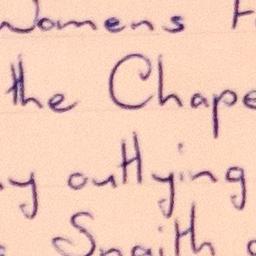 Womens
the Chape
y outlying
Snaith